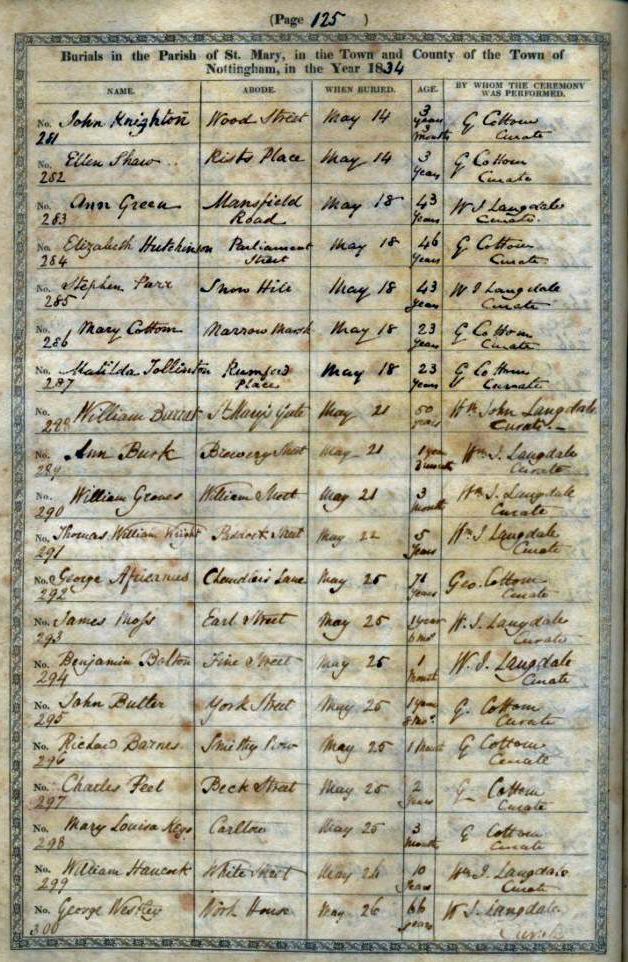 (Page 125 )
Burials in the Parish of St. Mary, in the Town and County of the Town of
Nottingham, in the Year 1834
NAME. ABODE. WHEN BURIED. AGE. BY WHOM THE CEREMONY WAS PERFORMED.
John Knighton Wood Street May 14 3 years 3 months G Cottom Curate
No. 281
Ellen Shaw Rists Place May 14 3 Years G Cottom Curate
No. 282
Ann Green Mansfield Road May 18 43 Years W J Langdale Curate
No. 283
Elizabeth Hutchinson Parliament Street May 18 46 Years G Cottom Curate
No. 284
Stephen Parr Snow Hill May 18 43 Years W J Langdale Curate
No. 285
Mary Cottom Narrow Marsh May 18 23 Years G Cottom Curate
No. 286
Matilda Tollinton Rumford Place May 18 23 Years G Cottom Curate
No. 287
William St Mary's Gate May 21 50 years Wm John Langdale Curate
No. 288
Ann Burk Brewery Street May 21 1 year months Wm J. Langdale Curate
No. 289
William Groves William Street May 21 3 month Wm J. Langdale Curate
No. 290
Thomas William Wright Paddock Street May 22 5 Years Wm J Langdale Curate
No. 291
George Africanus Chandlers Lane May 25 Years Geo. Cottom Curate
No. 292
James Moss Earl Street May 25 1 year 6 mos W. J. Langdale Curate
No. 293
Benjamin Bolton Pine Street May 25 1 Month W. J. Langdale Curate
No. 294
John Butler York Street May 25 1 year 8 mos. G. Cottom Curate
No. 295
Richard Barnes Smithy Row May 25 1 Month G Cottom Curate
No. 296
Charles Peel Beck Street May 25 2 Years G Cottom Curate
No. 297
Mary Louisa Keys Carlton May 25 3 Months G Cottom Curate
No. 298
William Hancock White Street May 26 10 Years Wm J. Langdale Curate
No. 299
George Westley Work House May 26 66 Years W J. Langdale Curate
No. 300